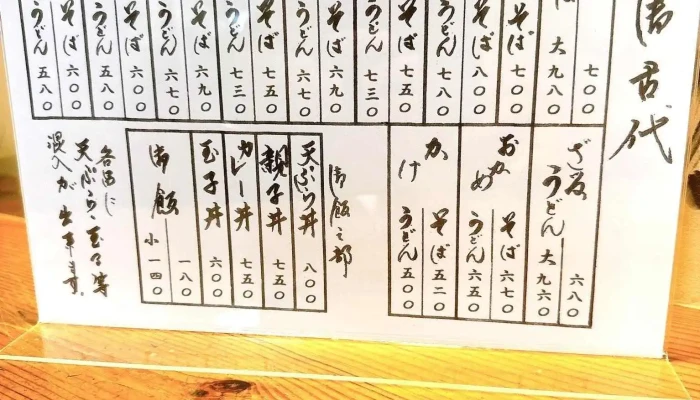 代
七〇〇
大 九八〇
そば 七〇〇
そば 八〇〇
うどん 七八〇
そば 七五〇
うどん 七三〇
そば 六九〇
うどん 六七〇
そば 七五〇
うどん 七三〇
そば 六九〇
うどん 六七〇
そば 六〇〇
うどん 五八〇
そば 六〇〇
うどん 五八〇
ざるうどん 六八〇
大 九六〇
おかめ そば 六七〇
うどん 六五〇
かけ そば 五二〇
うどん 五〇〇
御飯之部
天ぷら丼 八〇〇
親子丼 七五〇
カレー丼 七五〇
玉子丼 六〇〇
御飯 一八〇
小 一四〇
各品に
天ぷら、玉子等
混入が出来ます。